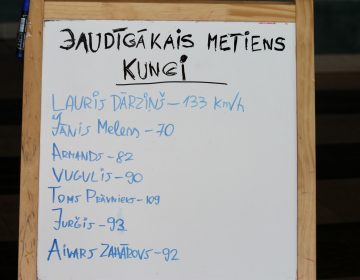 JAUDĪGĀKAIS METIENS
KUNGI
LAURIS DĀRZIŅŠ - 133 km/h
Jānis Melens - 70
ARMANDS - 82
VUGULIS - 90
TOMS PRĀVNIEKS - 109
Jurģis - 93
AIVARS ZAHAROVS - 92